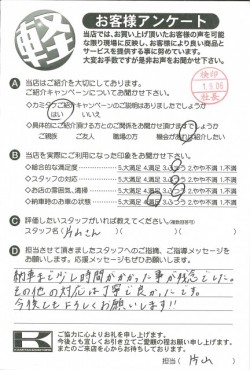 軽
お客様アンケート
当店では、お買い上げ頂いたお客様の声を可能
な限り現場に反映し、お客様により良い商品と
サービスを提供する事に努めています。
大変お手数ですが是非お声をお聞かせ下さい。
検印
1.9.06
社長
A 当店はご紹介を大切にしております。
ご紹介キャンペーンについてお聞かせ下さい。
はい いいえ
ご親族 ご友人 職場の方 機会があれば紹介したい
B 当店を実際にご利用になった印象をお聞かせ下さい。
◇総合的な満足度 5.大満足 4.満足 3.ふつう 2.やや不満 1.不満
◇スタッフの対応 5.大満足 4.満足 3.ふつう 2.やや不満 1.不満
◇お店の雰囲気、清掃 5.大満足 4.満足 3.ふつう 2.やや不満 1.不満
◇納車時のお車の状態 5.大満足 4.満足 3.ふつう 2.やや不満 1.不満
C 評価したいスタッフがいれば教えてください。(複数回答可)
スタッフ名(片山さん)
D 担当させて頂きましたスタッフへのご指摘、ご指導メッセージを
お願いします。応援メッセージもぜひお願いします。
納車まで少し時間がかかった事が残念でした。
その他の対応は丁寧で良かったです。
今後もよろしくお願いします!!
K
ご協力に心よりお礼を申し上げます。
今後とも宜しくお引き立てご愛顧の程お願い申し上げます。
またのご来店を心からお待ちしております。
担当(片山)